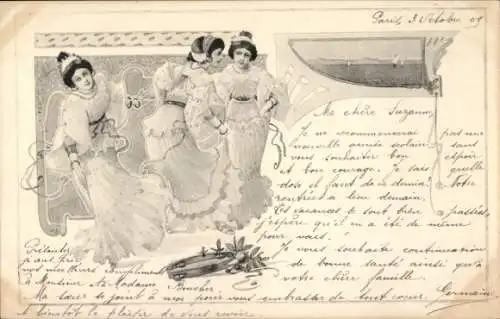 Paris, 3 Octobre 01
Ma chère Suzanne,
Je ne recommencerai pas une
nouvelle année scolaire sans
vous souhaiter bon espoir
et bon courage. Je sais quelle
dose il faut de ce demia. Votre
rentrée a lieu demain.
Les vacances se sont bien passées,
j'espère qu'il en a été de même
pour vous.
Je vous souhaite continuation
de bonne santé ainsi qu'à
votre chère famille.
Présentez
à
nos meilleurs compliments
à Monsieur et à Madame Boucher.
Ma sœur se joint à moi pour vous embrasser de tout cœur. Germaine
A bientôt le plaisir de vous revoir.